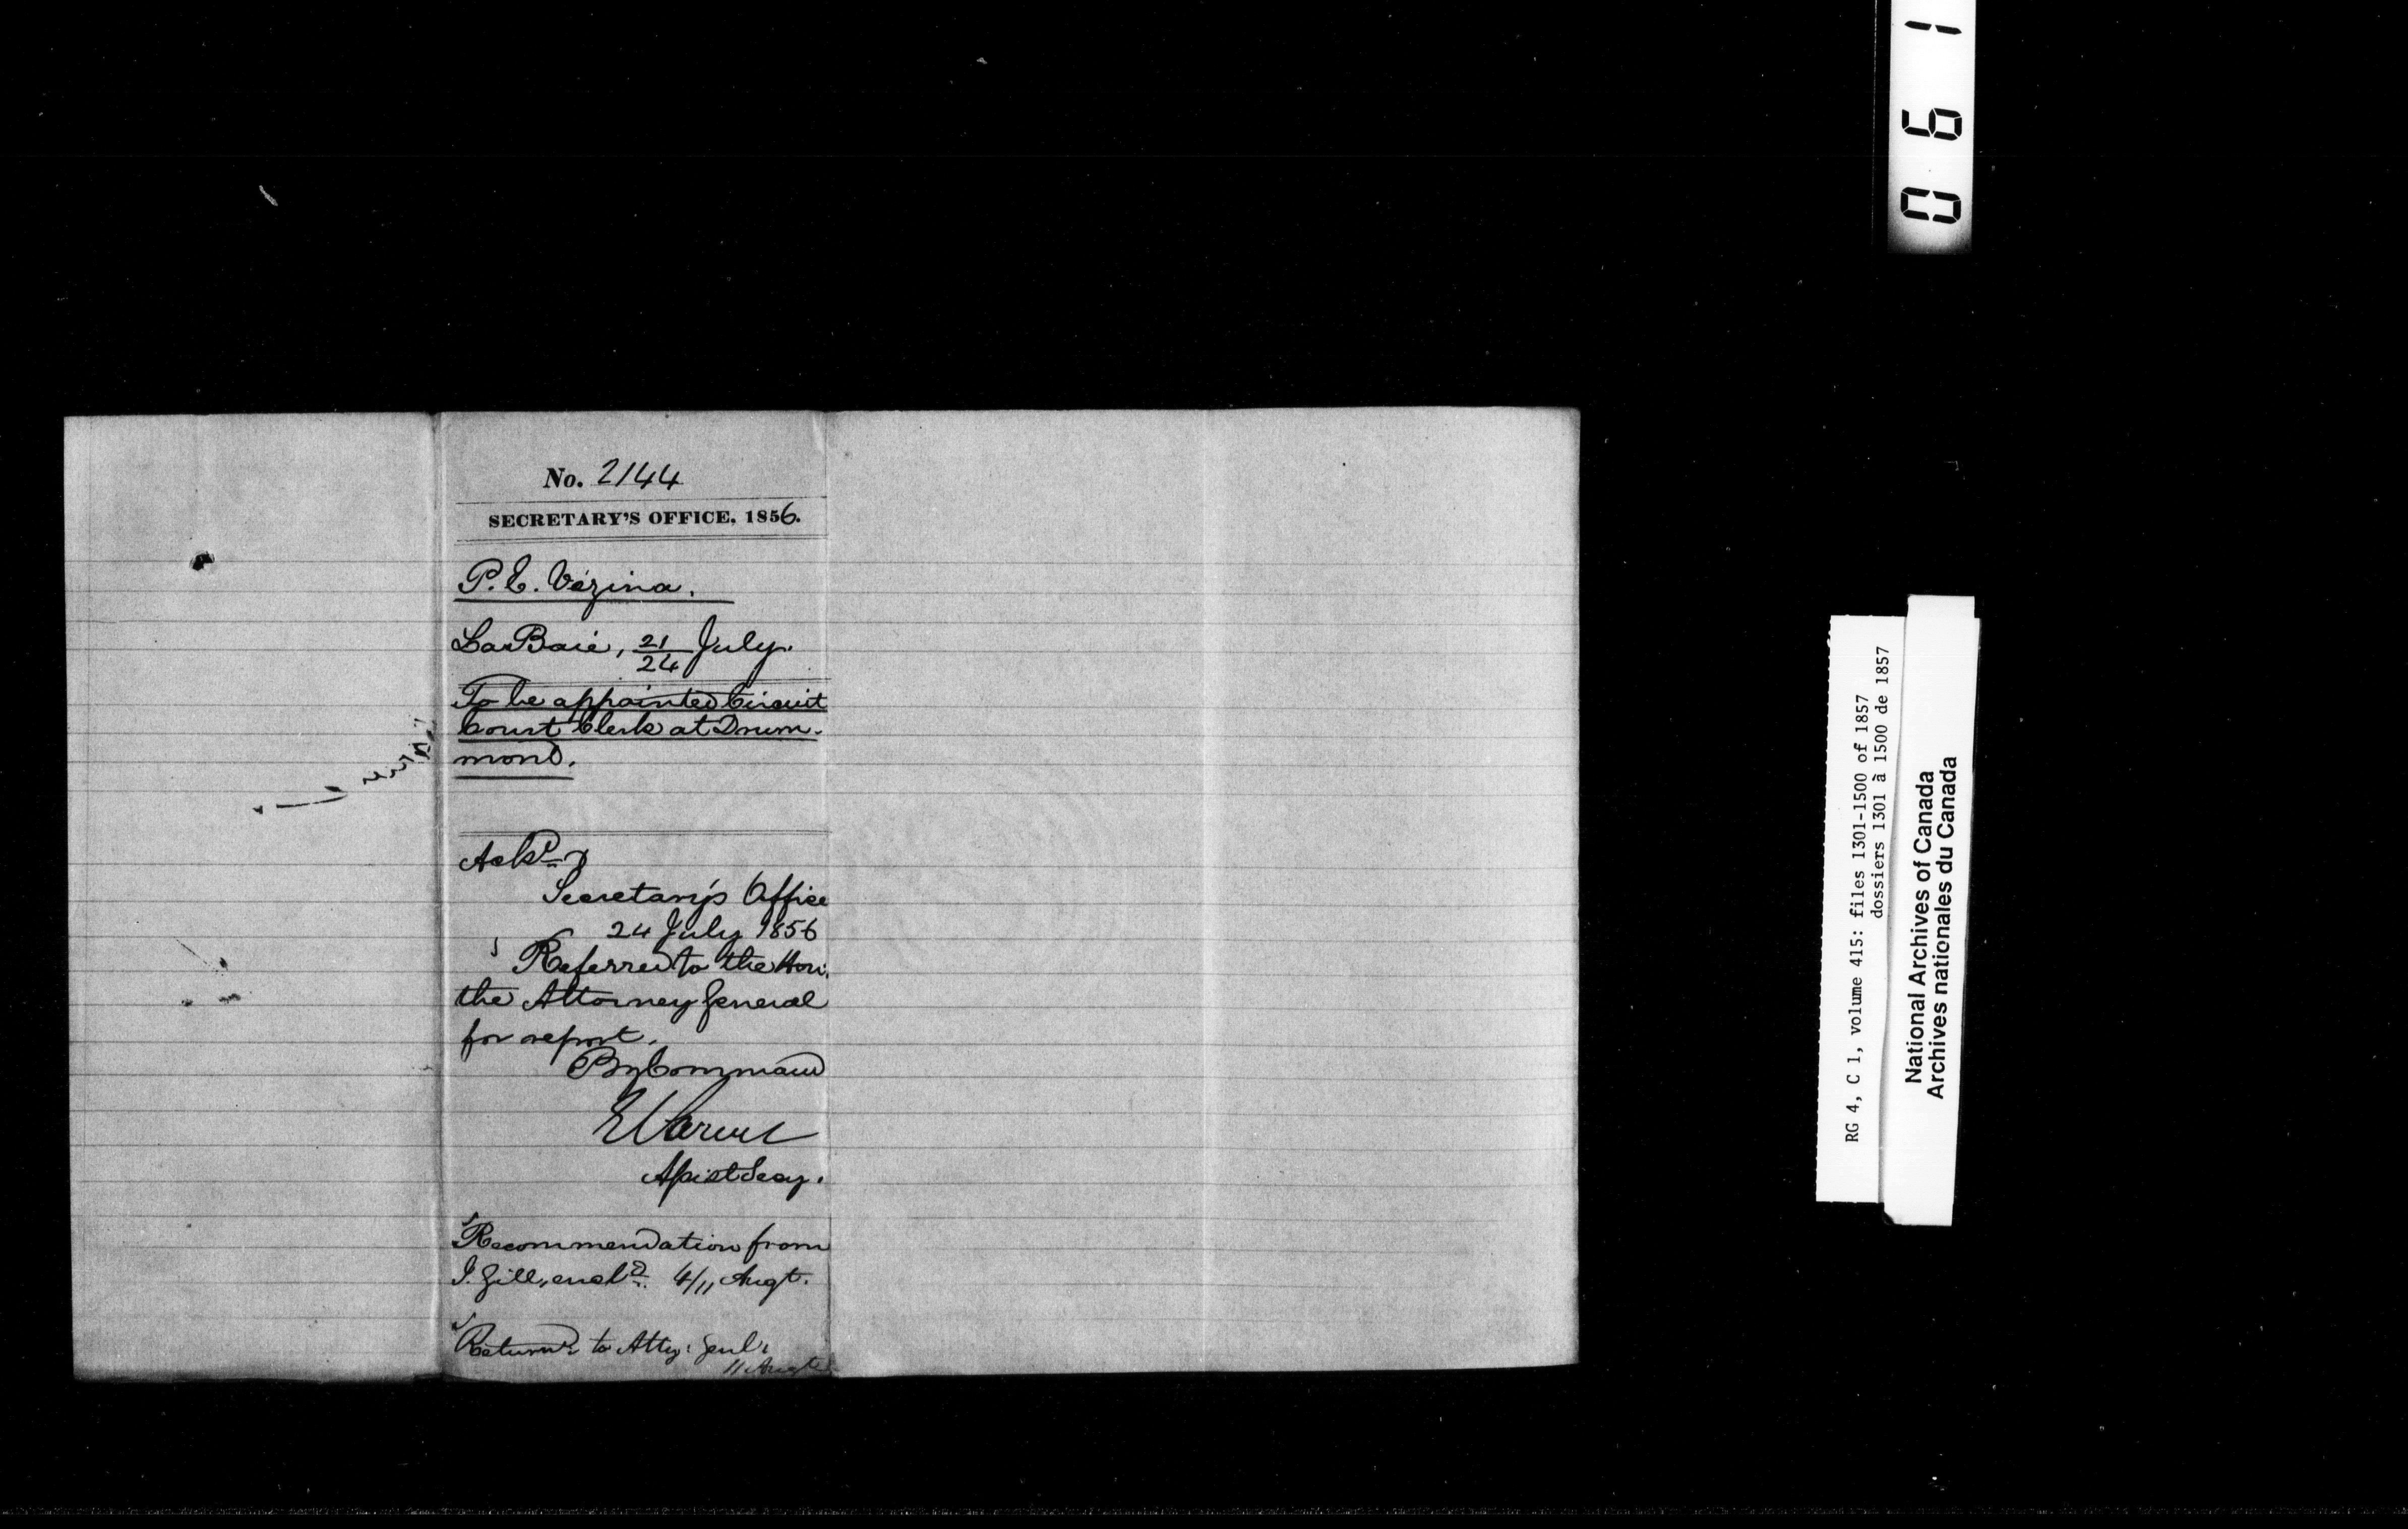 No. 2144
SECRETARY'S OFFICE, 1856.
P. E. Vézina.
LaBaie, 21/24 July.
To be appointed Circuit
Court Clerk at Drum-
mond.
Ackd
Secretary's Office
24 July 1856
Referred to the Hon.
the Attorney General
for report.
By Command
E Parent
Assist Secy.
Recommendation from
I. Gill, encld. 4/11 Augt.
Returnd to Atty: Genl:
11 Augt
061
RG 4, C 1, volume 415: files 1301-1500 of 1857
dossiers 1301 à 1500 de 1857
National Archives of Canada
Archives nationales du Canada